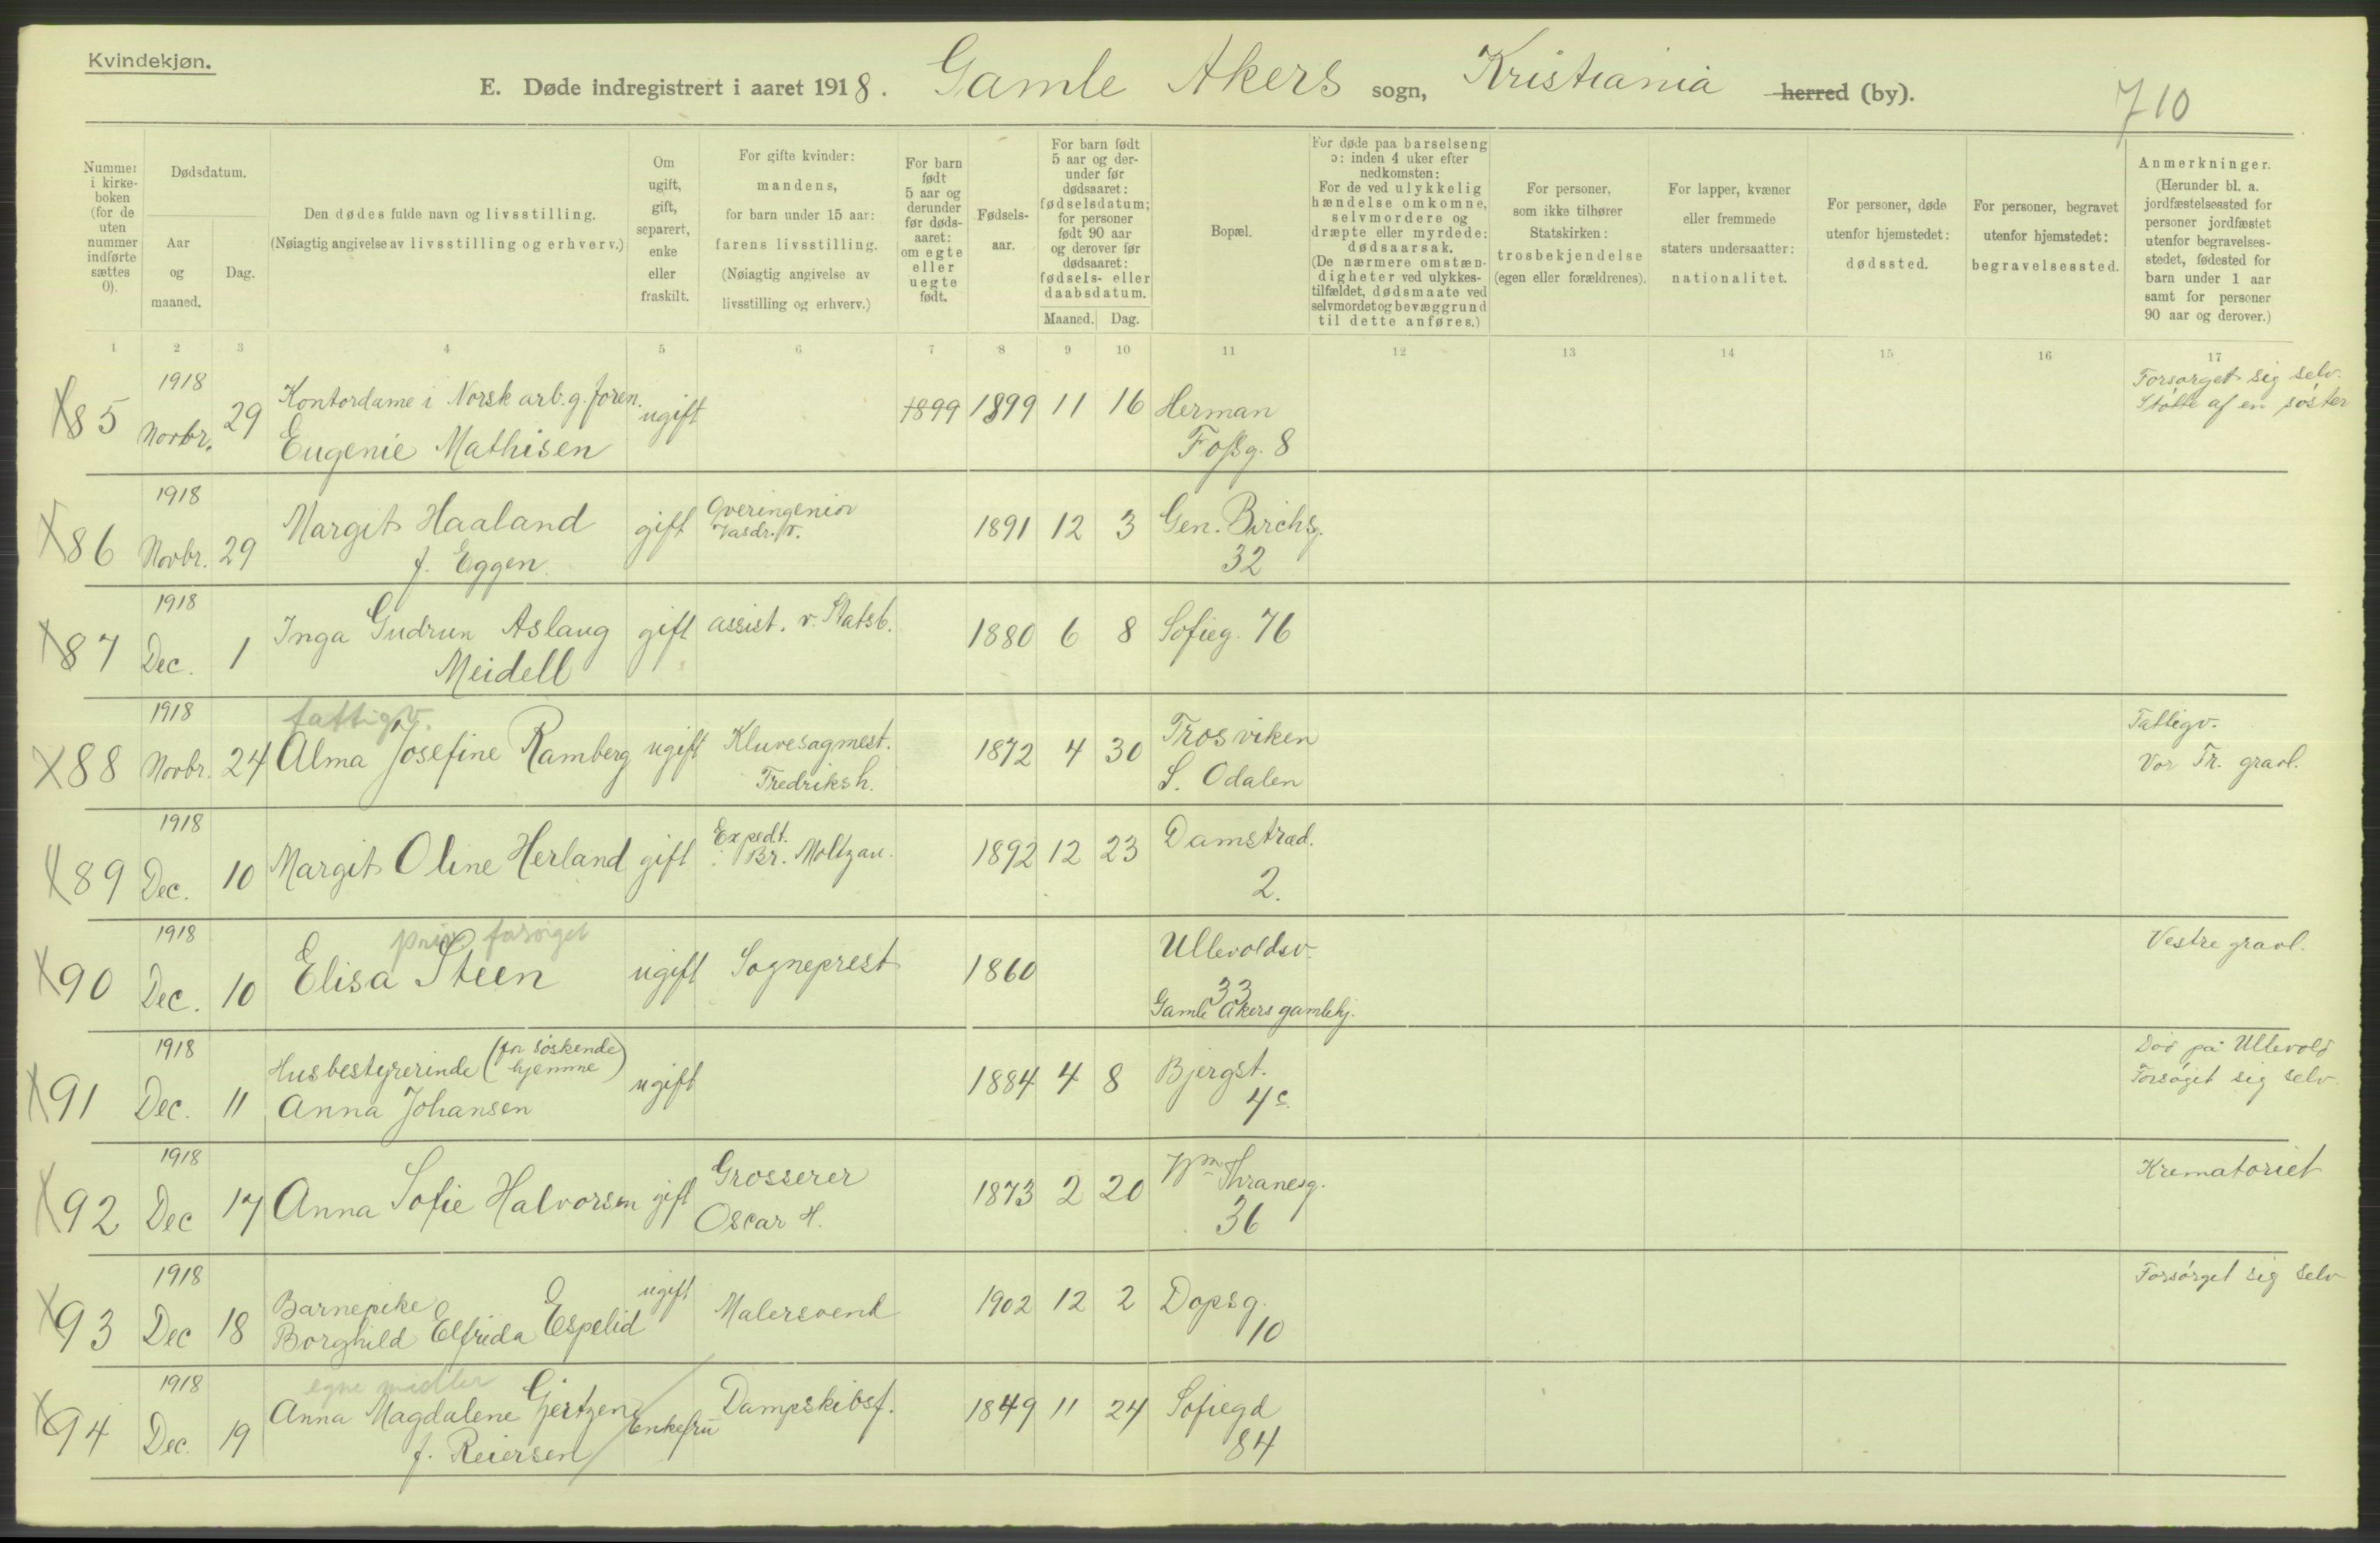 Kvindekjøn.
E. Døde indregistrert i aaret 1918. Gamle Akers sogn, Kristiania herred (by).
710
Nummer i kirkeboken (for de uten nummer indførte sættes 0).
Dødsdatum.
Aar og maaned.
Dag.
Den dødes fulde navn og livsstilling.
(Nøiagtig angivelse av livsstilling og erhverv.)
Om ugift, gift, separert, enke eller fraskilt.
For gifte kvinder: mandens, for barn under 15 aar: farens livsstilling. (Nøiagtig angivelse av livsstilling og erhverv.)
For barn født 5 aar og derunder før dødsaaret: om egte eller uegte født.
Fødselsaar.
For barn født 5 aar og derunder før dødsaaret: fødselsdatum; for personer født 90 aar og derover før dødsaaret: fødsels- eller daabsdatum.
Maaned. Dag.
Bopæl.
For døde paa barselseng ɔ: inden 4 uker efter nedkomsten: For de ved ulykkelig hændelse omkomne, selvmordere og dræpte eller myrdede: dødsaarsak. (De nærmere omstændigheter ved ulykkestilfældet, dødsmaate ved selvmordet og bevæggrund til dette anføres.)
For personer, som ikke tilhører Statskirken: trosbekjendelse (egen eller forældrenes).
For lapper, kvæner eller fremmede staters undersaatter: nationalitet.
For personer, døde utenfor hjemstedet: dødssted.
For personer, begravet utenfor hjemstedet: begravelsessted.
Anmerkninger.
(Herunder bl. a. jordfæstelsessted for personer jordfæstet utenfor begravelsesstedet, fødested for barn under 1 aar samt for personer 90 aar og derover.)
1 2 3 4 5 6 7 8 9 10 11 12 13 14 15 16 17
85 1918 Novbr. 29 Kontordame i Norsk arb.g. foren. Eugenie Mathisen ugift 1899 1899 11 16 Herman Fossg. 8 Forsørget sig selv. Støtte af en søster
86 1918 Novbr. 29 Margit Haaland f. Eggen gift Overingeniør Vasdr. v. 1891 12 3 Gen. Birchsg. 32
87 1918 Dec. 1 Inga Gudrun Aslaug Meidell gift assist. v. Statsb. 1880 6 8 Sofieg. 76
88 1918 Novbr. 24 fattigv. Alma Josefine Ramberg ugift Kluvesagmest. Fredriksh. 1872 4 30 Trosviken S. Odalen Fattigv. Vor Fr. gravl.
89 1918 Dec. 10 Margit Oline Herland gift Expedt. i Br. Moltzau. 1892 12 23 Damstræd. 2.
90 1918 Dec. 10 priv. forsørget Elisa Steen ugift Sogneprest 1860 Ullevoldsv. 33 Gamle Akers gamlehj. Vestre gravl.
91 1918 Dec. 11 Husbestyrerinde (for søskende hjemme) Anna Johansen ugift 1884 4 8 Bjergst. 4c. Død på Ullevold Forsøget sig selv.
92 1918 Dec 17 Anna Sofie Halvorsen gift Grosserer Oscar H. 1873 2 20 Wm Thranesg. 36 Krematoriet
93 1918 Dec 18 Barnepike Borghild Elfrida Espelid ugift Malersvend 1902 12 2 Dopsg. 10 Forsørget sig selv
94 1918 Dec. 19 egne midler Anna Magdalene Gjertzen f. Reiersen Enkefru Dampskibsf. 1849 11 24 Sofiegd 84